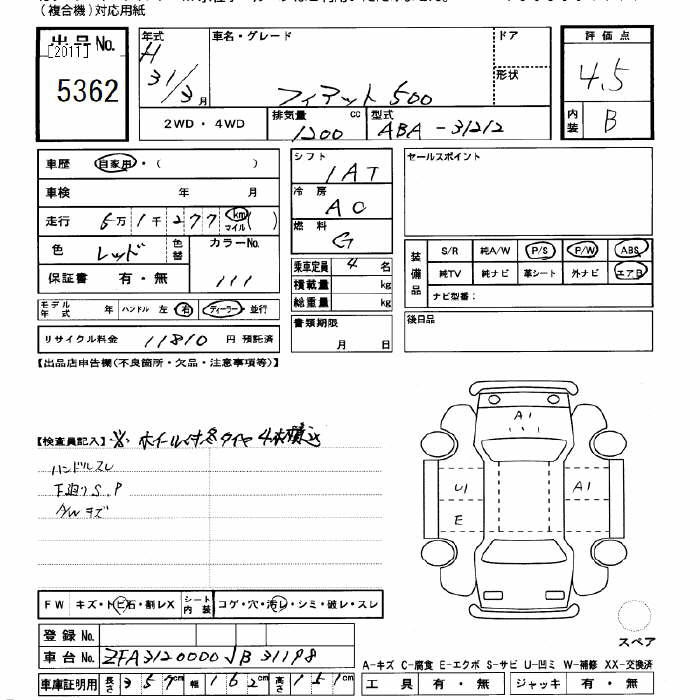 (複合機)対応用紙
出品No. [2011] 5362
年式 H 31/3月
車名・グレード フィアット 500
ドア
形状
評価点 4.5
内装 B
2WD・4WD
排気量 cc 1200
型式 ABA-31212
車歴 自家用・( )
車検 年 月
走行 6万1千277 km マイル ( )
色 レッド 色替 カラーNo. 111
保証書 有・無
モデル年式 年 ハンドル 左 右 ディーラー・並行
リサイクル料金 11810 円 預託済
シフト 1AT
冷房 AC
燃料 G
乗車定員 4 名
積載量 kg
総重量 kg
書類期限 月 日
セールスポイント
装備品 S/R 純A/W P/S P/W ABS
純TV 純ナビ 革シート 外ナビ エアB
ナビ型番:
後日品
【出品店申告欄(不良箇所・欠品・注意事項等)】
【検査員記入】 ※ ホイール付冬タイヤ4本積込
ハンドルスレ
下廻りS.P
A/Wキズ
A1
U1
A1
E
FW キズ・トビ石・割レX シート内装 コゲ・穴・汚レ・シミ・破レ・スレ
登録No.
車台No. ZFA3120000JB31198
車庫証明用 長さ 357 幅 162 高さ 151 cm
スペア
A-キズ C-腐食 E-エクボ S-サビ U-凹ミ W-補修 XX-交換済
工具 有・無 ジャッキ 有・無